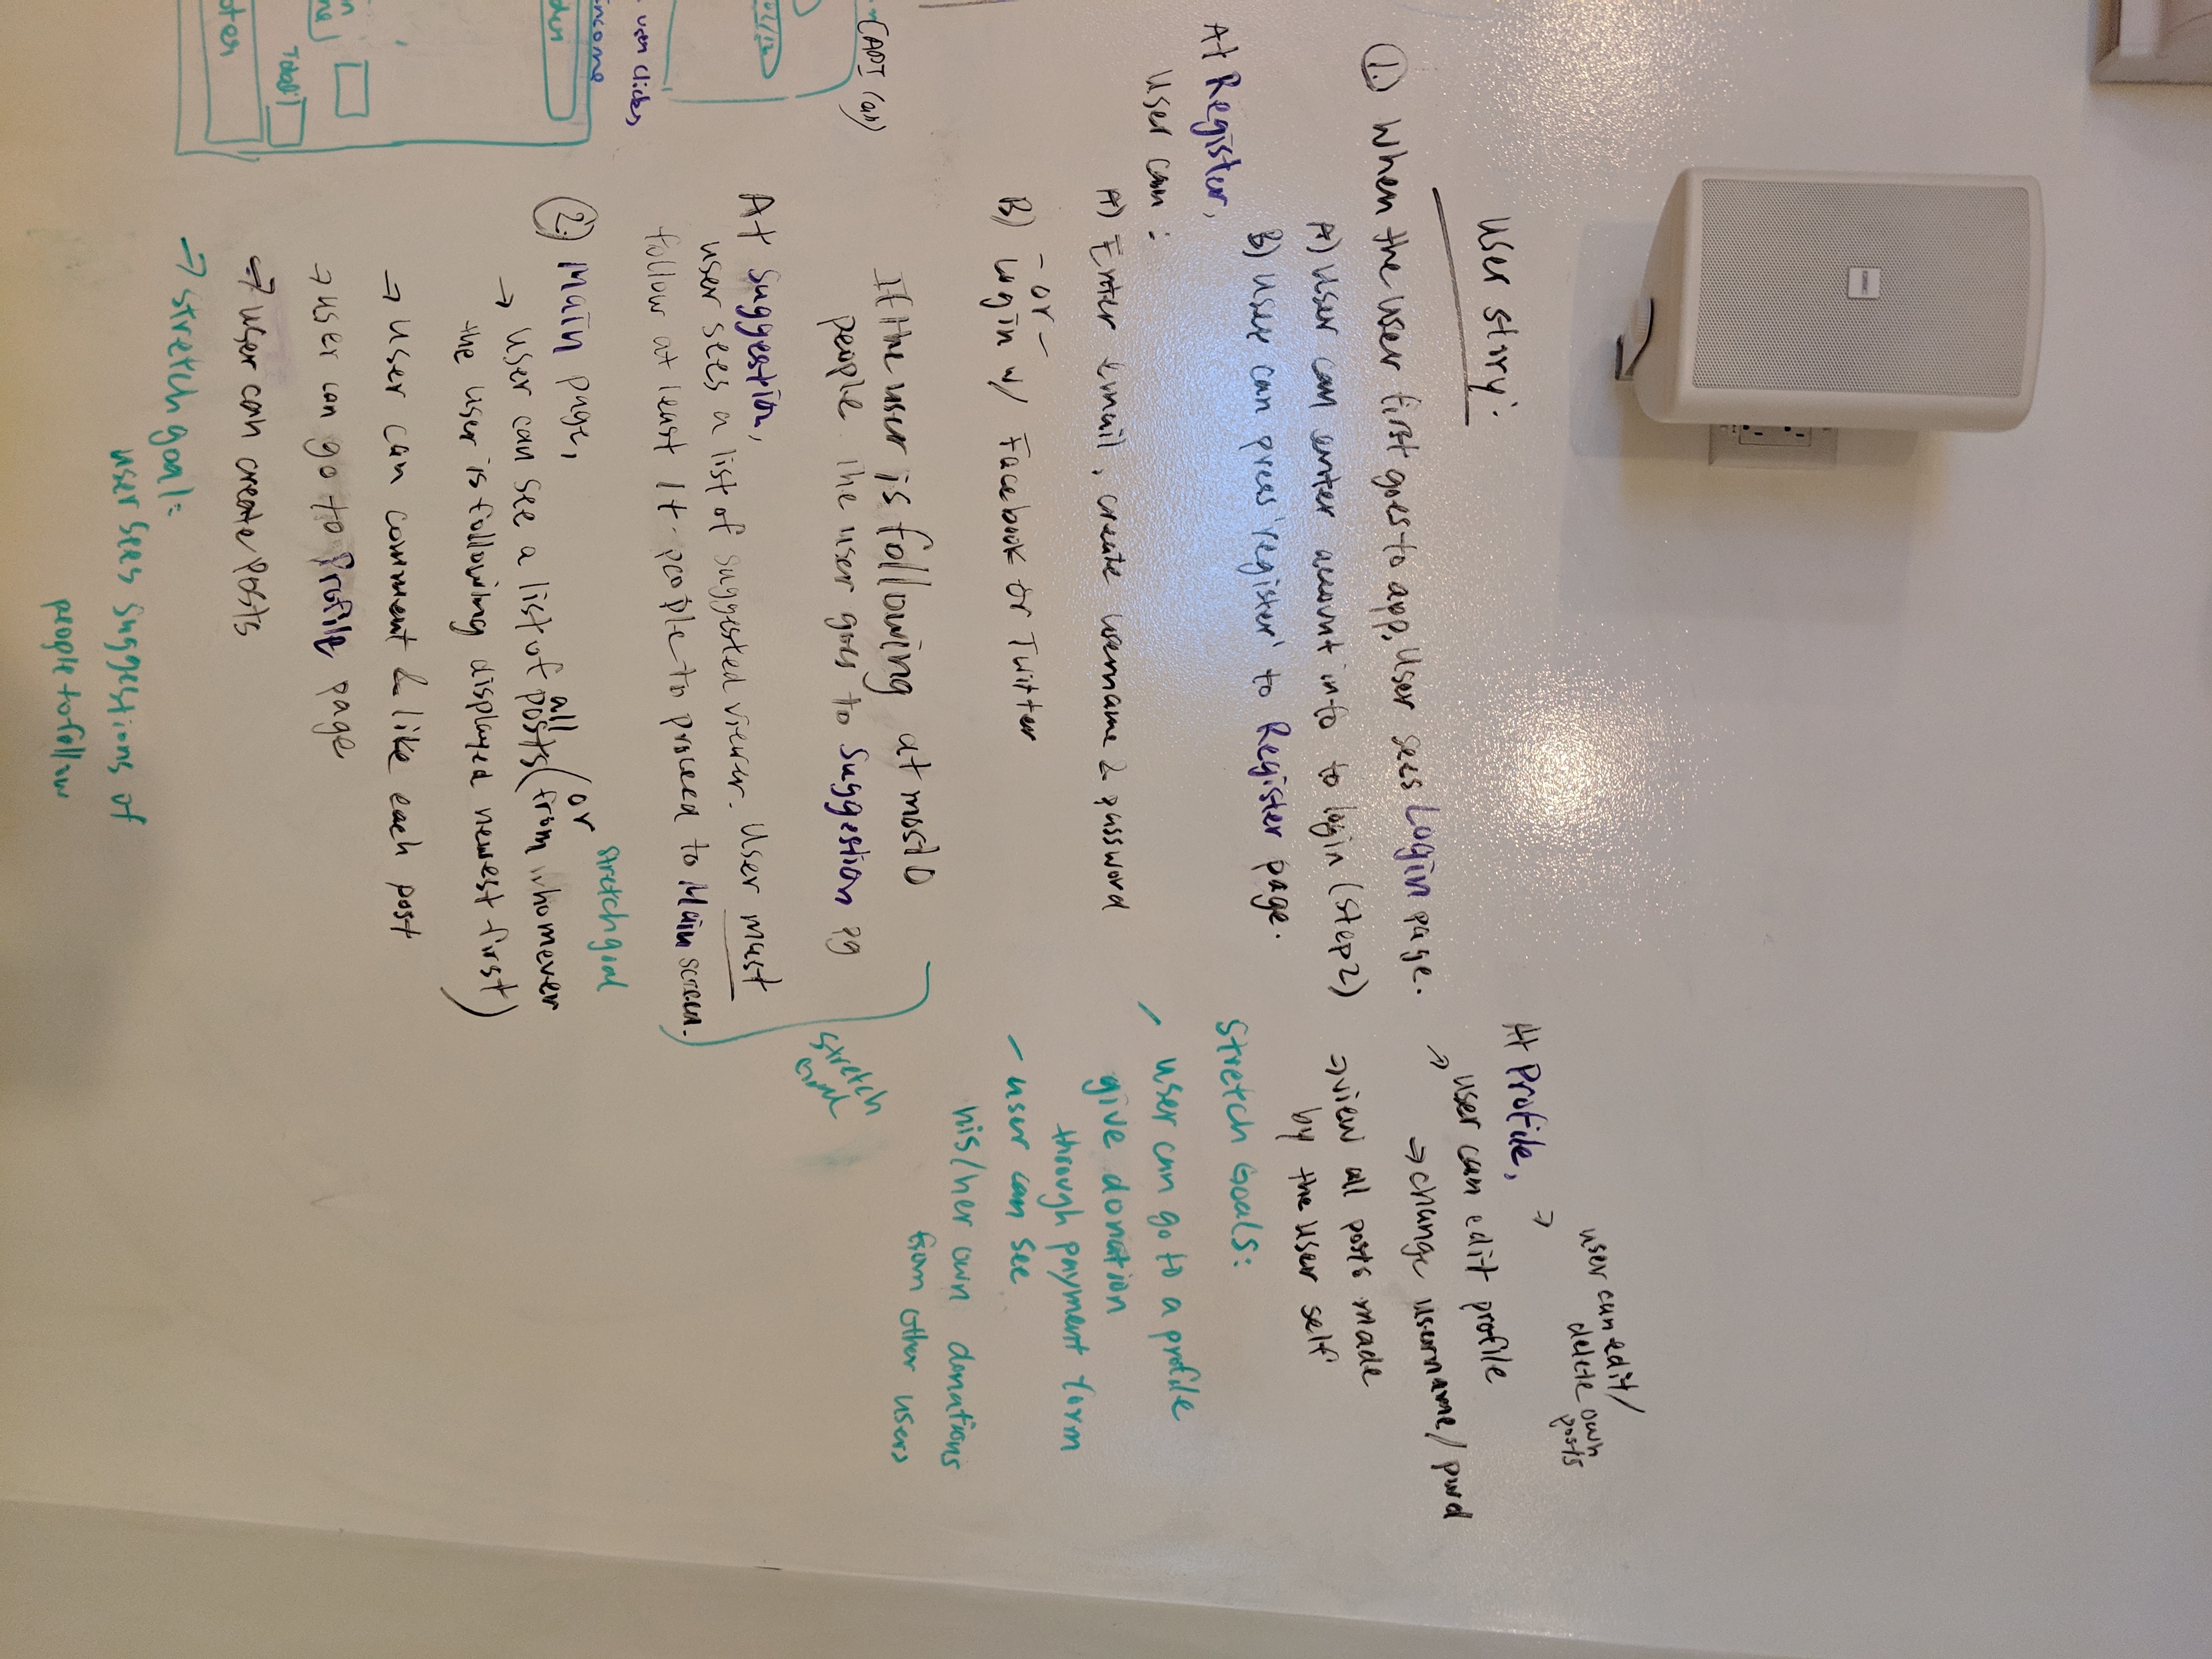 User story:
1.) When the user first goes to app, User sees Login page.
A) User can enter account info to login (step 2)
B) User can press 'register' to Register page.
At Register,
User can:
A) Enter email, create username & password
- or -
B) Login w/ Facebook or Twitter
If the user is following at most 10
people the user goes to Suggestion pg
At Suggestion,
user sees a list of suggested viewer. User must
follow at least 1+ people to proceed to Main screen.
stretch
goal
2.) Main page,
stretch goal
→ User can see a list of all posts (or from whomever
the user is following displayed newest first)
→ User can comment & like each post
→ user can go to Profile page
→ User can create Posts
→ stretch goal:
user sees suggestions of
people to follow
At Profile,
→ user can edit/
delete own
posts
→ user can edit profile
→ change username/pwd
→ view all posts made
by the user self
Stretch Goals:
- user can go to a profile
give donation
through payment form
- user can see
his/her own donations
from other users
user clicks,
income